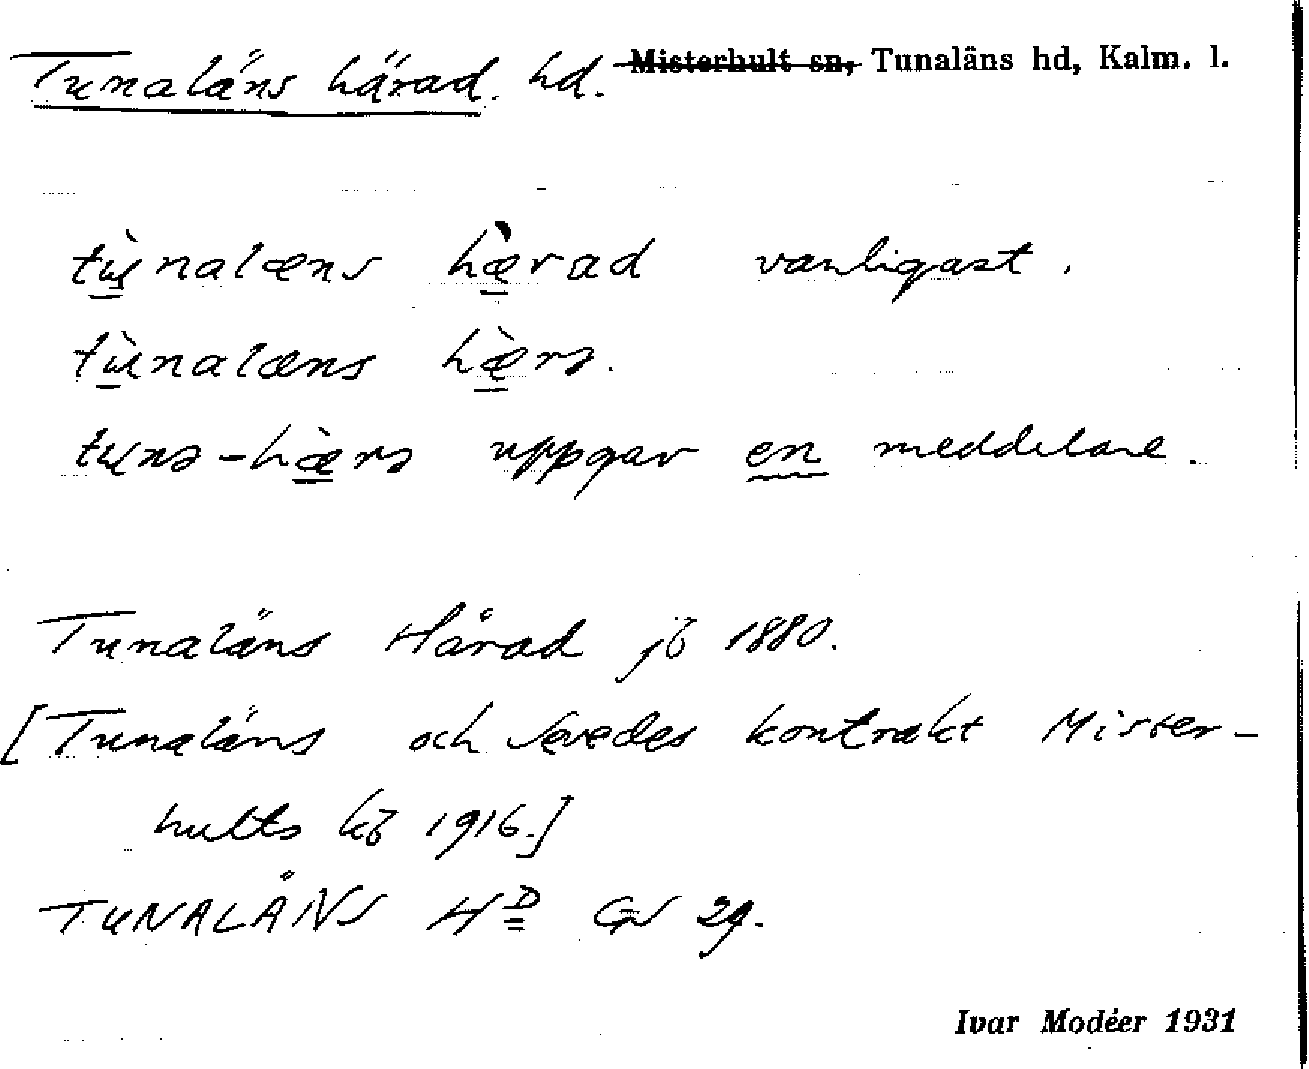 Tunaläns härad. hd. ~~Misterhult sn,~~ Tunaläns hd, Kalm. l.
tùnalæns hæ̀rad vanligast.
tùnalæns hæ̀rə.
tunə-hæ̀rə uppgav en meddelare.
Tunaläns Härad jb 1880.
[Tunaläns och Sevedes kontrakt Mister-
hults kb 1916.]
TUNALÄNS HD GS 29.
Ivar Modéer 1931